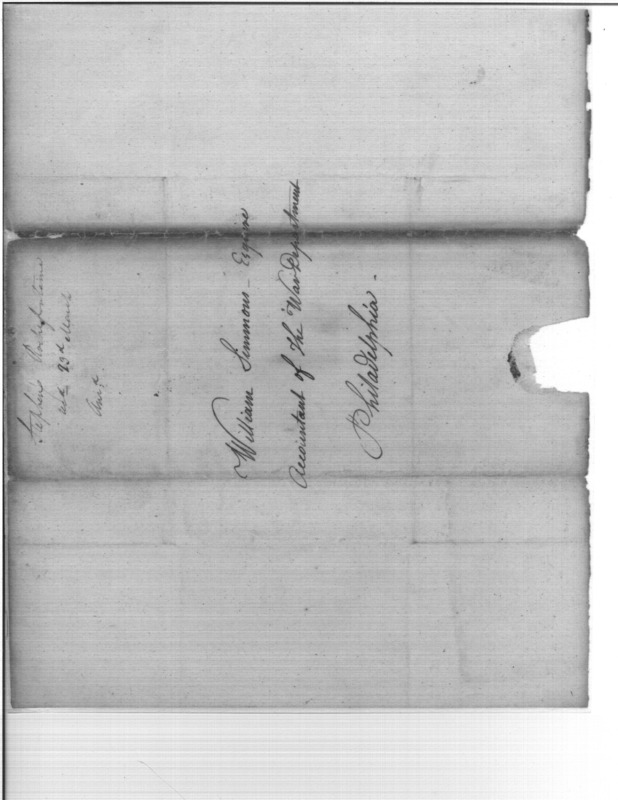 Stephen Rochefontaine
23d March
William Simmons Esquire
Accountant of the War Department
Philadelphia.